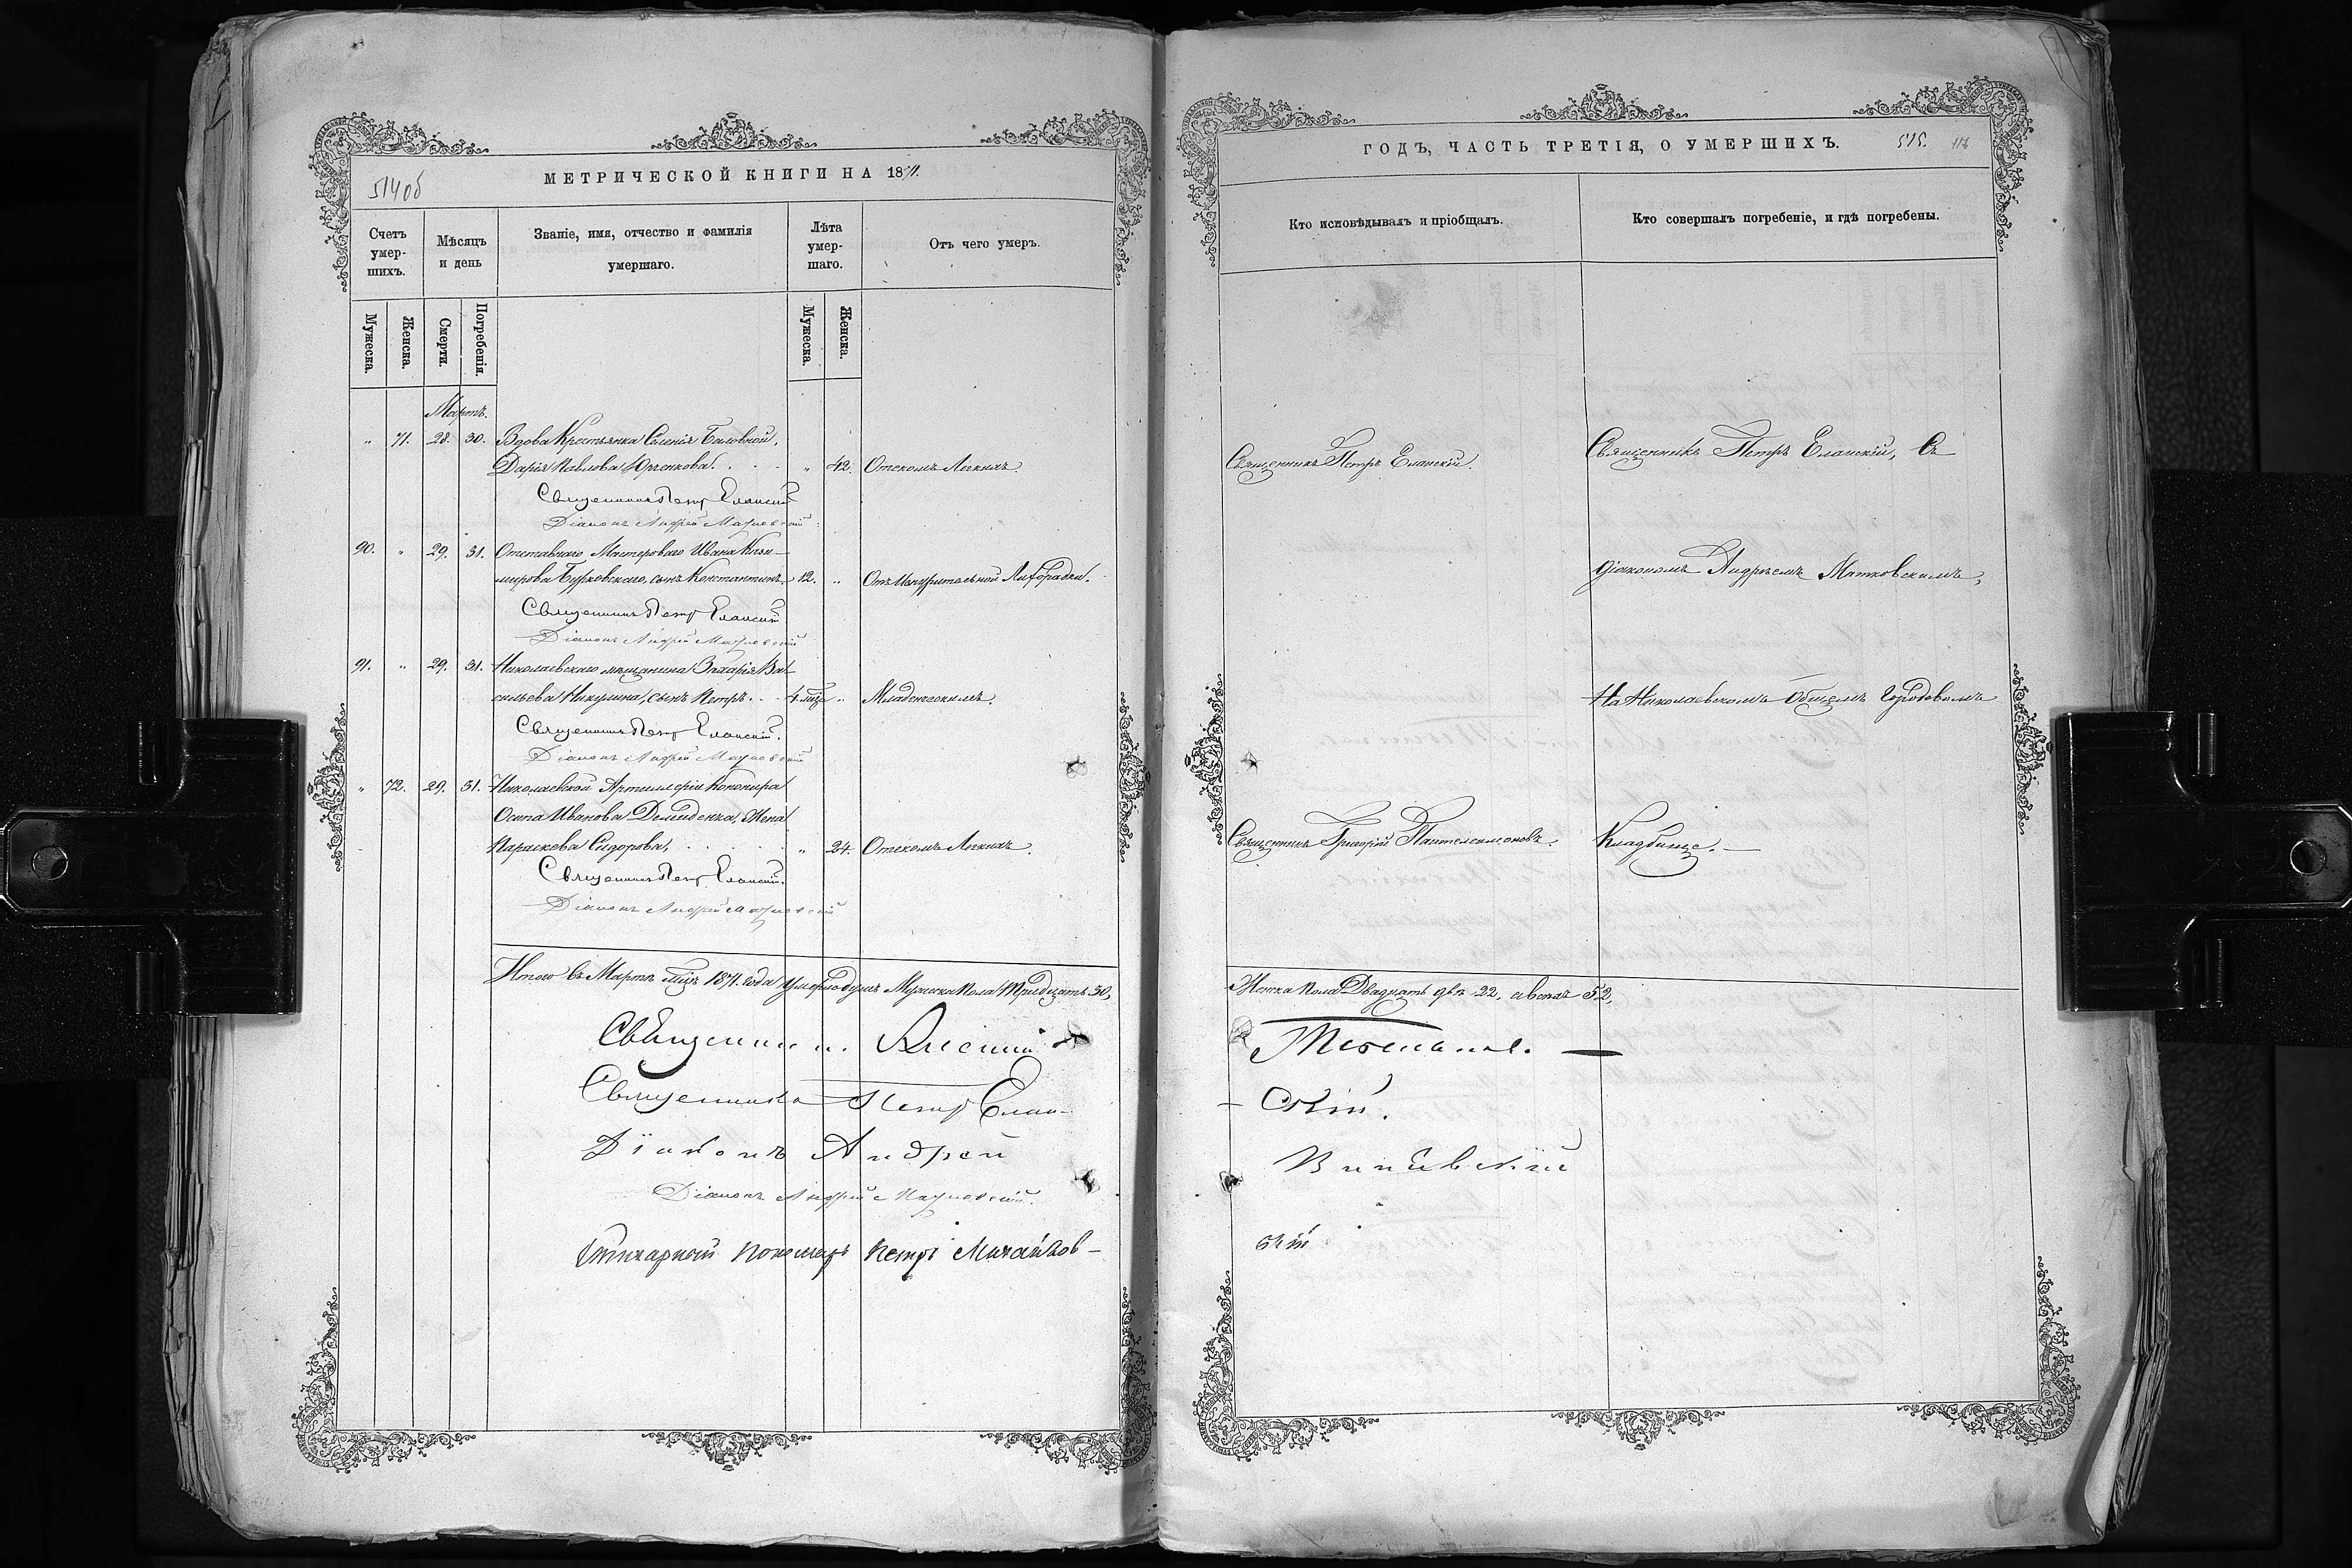 514об
МЕТРИЧЕСКОЙ КНИГИ НА 1871.
Счетъ умер-шихъ.
Мѣсяцъ и день
Званіе, имя, отчество и фамилія умершаго.
Лѣта умер-шаго.
Отъ чего умеръ.
Мужеска.
Женска.
Смерти.
Погребенія.
Мужеска.
Женска.
Мартъ.
" 71. 28. 30. Вдова Крестьянка Селенія Баловной,
Дарія Павлова Юрченкова. " 42. Отекомъ Легкихъ.
Священникъ Петръ Еланскій
Діаконъ Андрей Матковскій
90. " 29. 31. Отставнаго Мастероваго Ивана Кази-
мирова Бурковскаго, сынъ Константинъ 12. " Отъ Изнурительной Лихорадки.
Священникъ Петръ Еланскій
Діаконъ Андрей Матковскій
91. " 29. 31. Николаевскаго мѣщанина Захарія Ва-
сильева Никулина, сынъ Петръ. 4. мѣся " Младенческимъ.
Священникъ Петръ Еланскій.
Діаконъ Андрей Матковскій
" 72. 29. 31. Николаевской Артиллеріи Канонира
Осипа Иванова Демиденка, Жена
Параскева Сидорова, " 24. Отекомъ Легкихъ.
Священникъ Петръ Еланскій.
Діаконъ Андрей Матковскій
Итого въ Мартѣ мѣсяцѣ 1871. года умерло душъ Мужеска Пола Тридцать 30,
Священникъ
Священникъ Петръ Елан-
Діаконъ Андрей
Діаконъ Андрей Матковскій.
Стихарный пономарь Петръ Михайлов-
ГОДЪ, ЧАСТЬ ТРЕТІЯ, О УМЕРШИХЪ.
515.
Кто исповѣдывалъ и пріобщалъ.
Кто совершалъ погребеніе, и гдѣ погребены.
Священникъ Петръ Еланскій.
Священникъ Петръ Еланскій, Съ
діакономъ Андреемъ Матковскимъ,
На Николаевскомъ Общемъ Городовомъ
Священникъ Григорій Пантелеимоновъ.
Кладбище.
Женска Пола Двадцать двѣ 22, а всехъ 52,
- скій.
скій